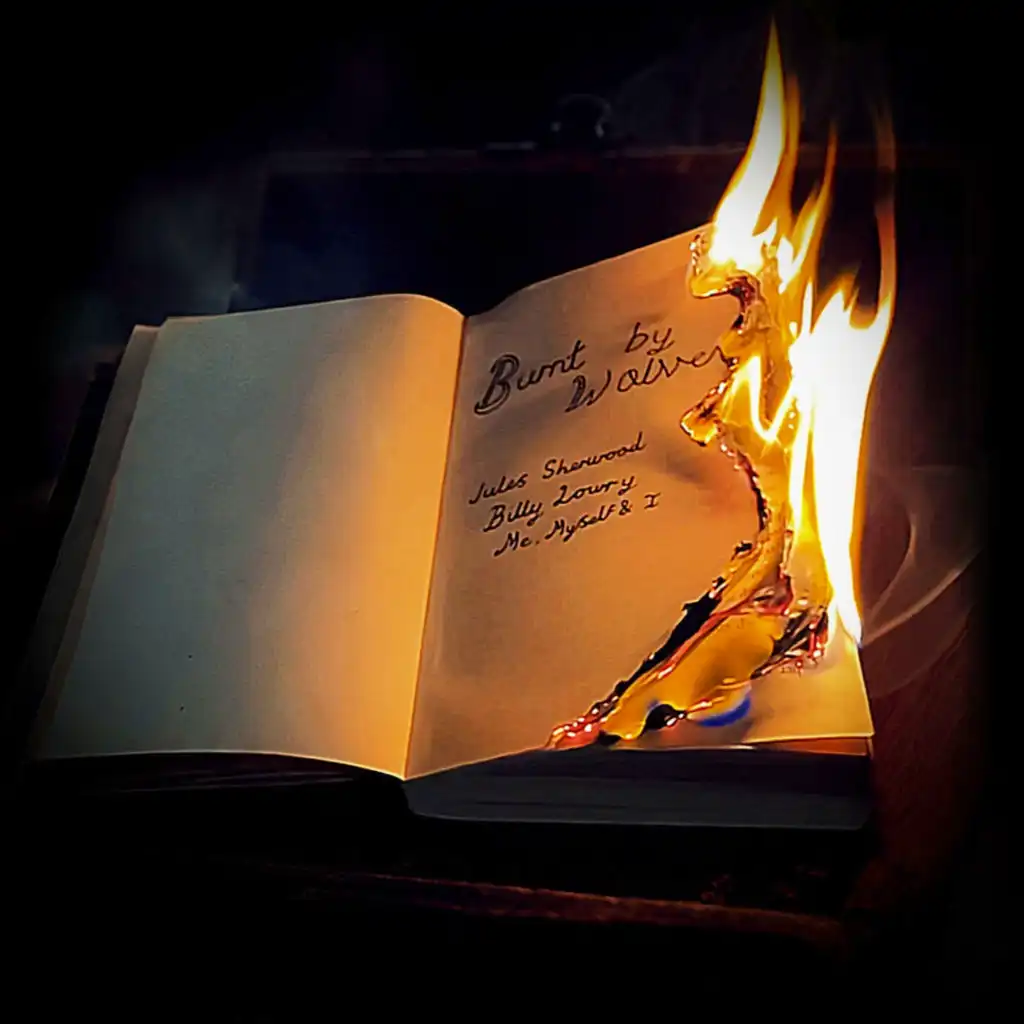 Burnt by
Wolves
Jules Sherwood
Billy Lowry
Me, Myself & I